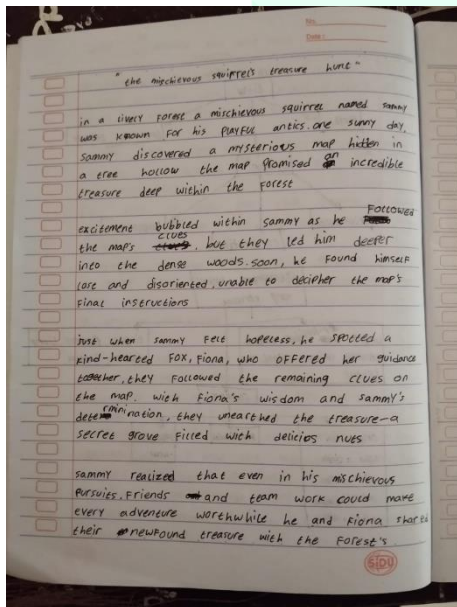 No.
Date:
"the mischievous squirrel's treasure hunt"
in a lively forest a mischievous squirrel named sammy
was known for his playful antics. one sunny day,
sammy discovered a mysterious map hidden in
a tree hollow the map promised an incredible
treasure deep within the forest
excitement bubbled within sammy as he followed
the map's clues, but they led him deeper
into the dense woods. soon, he found himself
lost and disoriented, unable to decipher the map's
final instructions
just when sammy felt hopeless, he spotted a
kind-hearted fox, fiona, who offered her guidance
together, they followed the remaining clues on
the map. with fiona's wisdom and sammy's
determinination, they unearthed the treasure-a
secret grove filled with delicios nuts
sammy realized that even in his mischievous
pursuits, friends and team work could make
every adventure worthwhile he and fiona
their newfound treasure with the forest's
SIDU